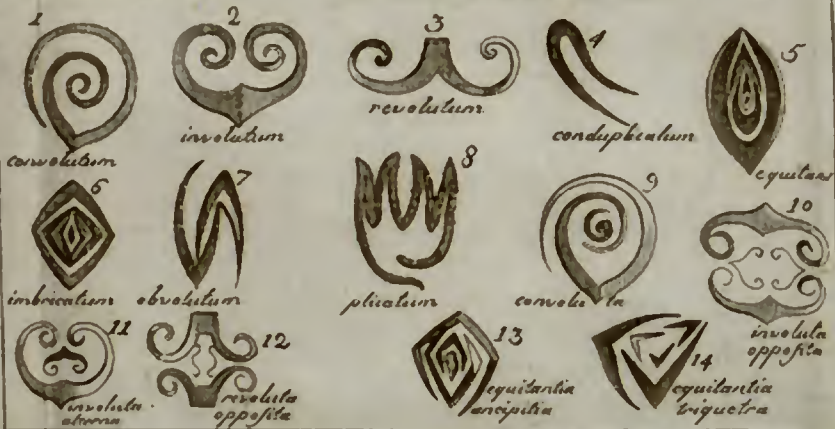 1
convolutum
2
involutum
3
revolutum
4
conduplicatum
5
equitans
6
imbricatum
7
obvolutum
8
plicatum
9
convoluta
10
involuta
oppoſita
11
involuta
alterna
12
revoluta
oppoſita
13
equitantia
ancipitia
14
equitantia
triquetra